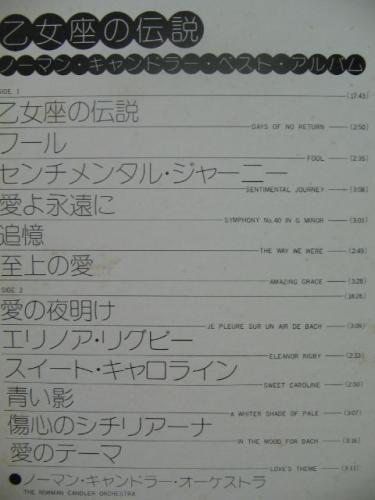 乙女座の伝説
ノーマン・キャンドラー・ベスト・アルバム
SIDE 1 (17:43)
乙女座の伝説
DAYS OF NO RETURN (2:50)
フール
FOOL (2:35)
センチメンタル・ジャーニー
SENTIMENTAL JOURNEY (3:08)
愛よ永遠に
SYMPHONY No.40 IN G MINOR (3:03)
追憶
THE WAY WE WERE (2:49)
至上の愛
AMAZING GRACE (3:28)
SIDE 2
愛の夜明け
JE PLEURE SUR UN AIR DE BACH (3:09)
エリノア・リグビー
ELEANOR RIGBY (2:33)
スイート・キャロライン
SWEET CAROLINE (2:50)
青い影
A WHITER SHADE OF PALE (3:07)
傷心のシチリアーナ
IN THE MOOD FOR BACH (3:16)
愛のテーマ
LOVE'S THEME (3:11)
●ノーマン・キャンドラー・オーケストラ
THE NORMAN CANDLER ORCHESTRA